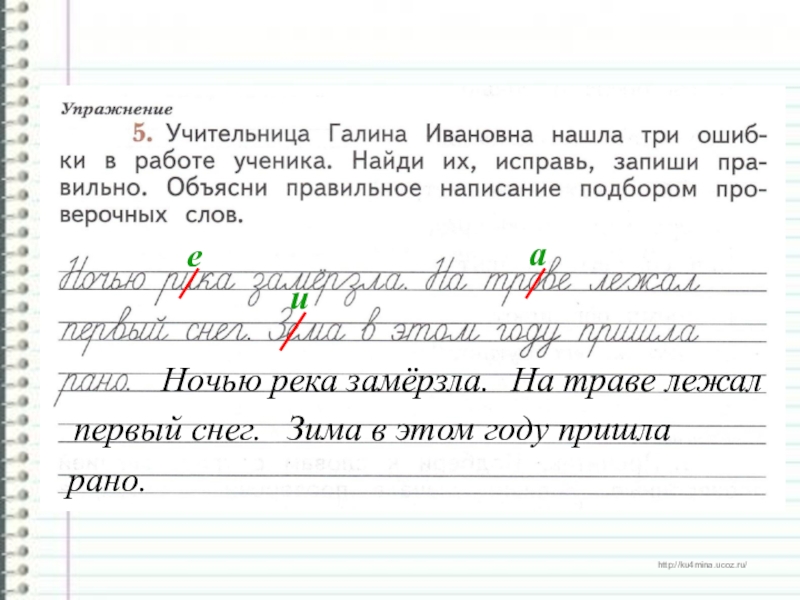 Упражнение
5. Учительница Галина Ивановна нашла три ошиб-
ки в работе ученика. Найди их, исправь, запиши пра-
вильно. Объясни правильное написание подбором про-
верочных слов.
е а
Ночью рика замёрзла. На трове лежал
и
первый снег. Зема в этом году пришла
рано. Ночью река замёрзла. На траве лежал
первый снег. Зима в этом году пришла
рано.
http://ku4mina.ucoz.ru/